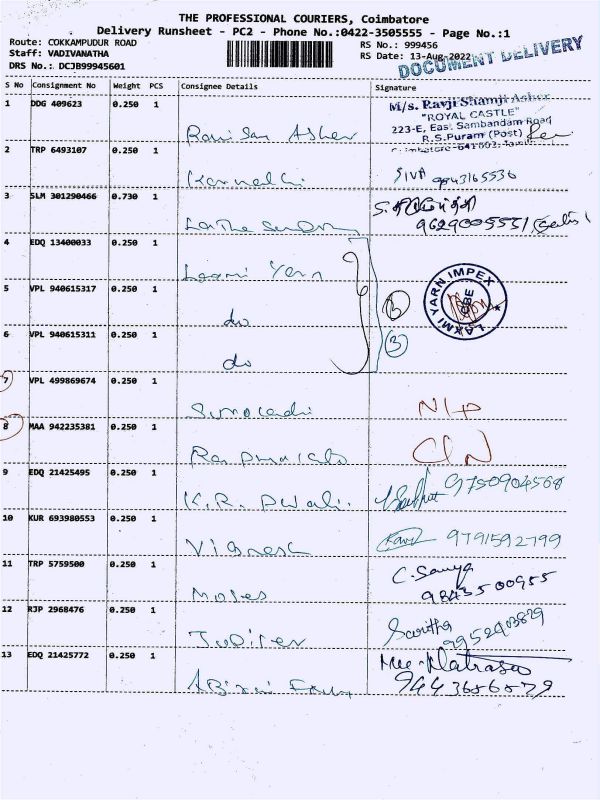 THE PROFESSIONAL COURIERS, Coimbatore
Delivery Runsheet - PC2 - Phone No.:0422-3505555 - Page No.:1
Route: COKKAMPUDUR ROAD
Staff: VADIVANATHA
DRS No.: DCJB99945601
RS No.: 999456
RS Date: 13-Aug-2022
DOCUMENT DELIVERY
S No Consignment No Weight PCS Consignee Details Signature
1 DDG 409623 0.250 1
M/s. Ravji Shamji Asher
"ROYAL CASTLE"
223-E, East Sambandam Road
R.S.Puram (Post)
Coimbatore-641 002.
2 TRP 6493107 0.250 1
SIVA 9843165536
3 SLM 301290466 0.730 1
9629005551
4 EDQ 13400033 0.250 1
Laxmi Yarn
5 VPL 940615317 0.250 1
do
LAXMI YARN IMPEX
CBE
3
6 VPL 940615311 0.250 1
do
7 VPL 499869674 0.250 1
8 MAA 942235381 0.250 1
9 EDQ 21425495 0.250 1
K.R. 9750904568
10 KUR 693980553 0.250 1
Vignesh 9791592799
11 TRP 5759500 0.250 1
Moses C. Sanya
9843500955
12 RJP 2968476 0.250 1
Jupiter Saritha
9952903829
13 EDQ 21425772 0.250 1
9443686879